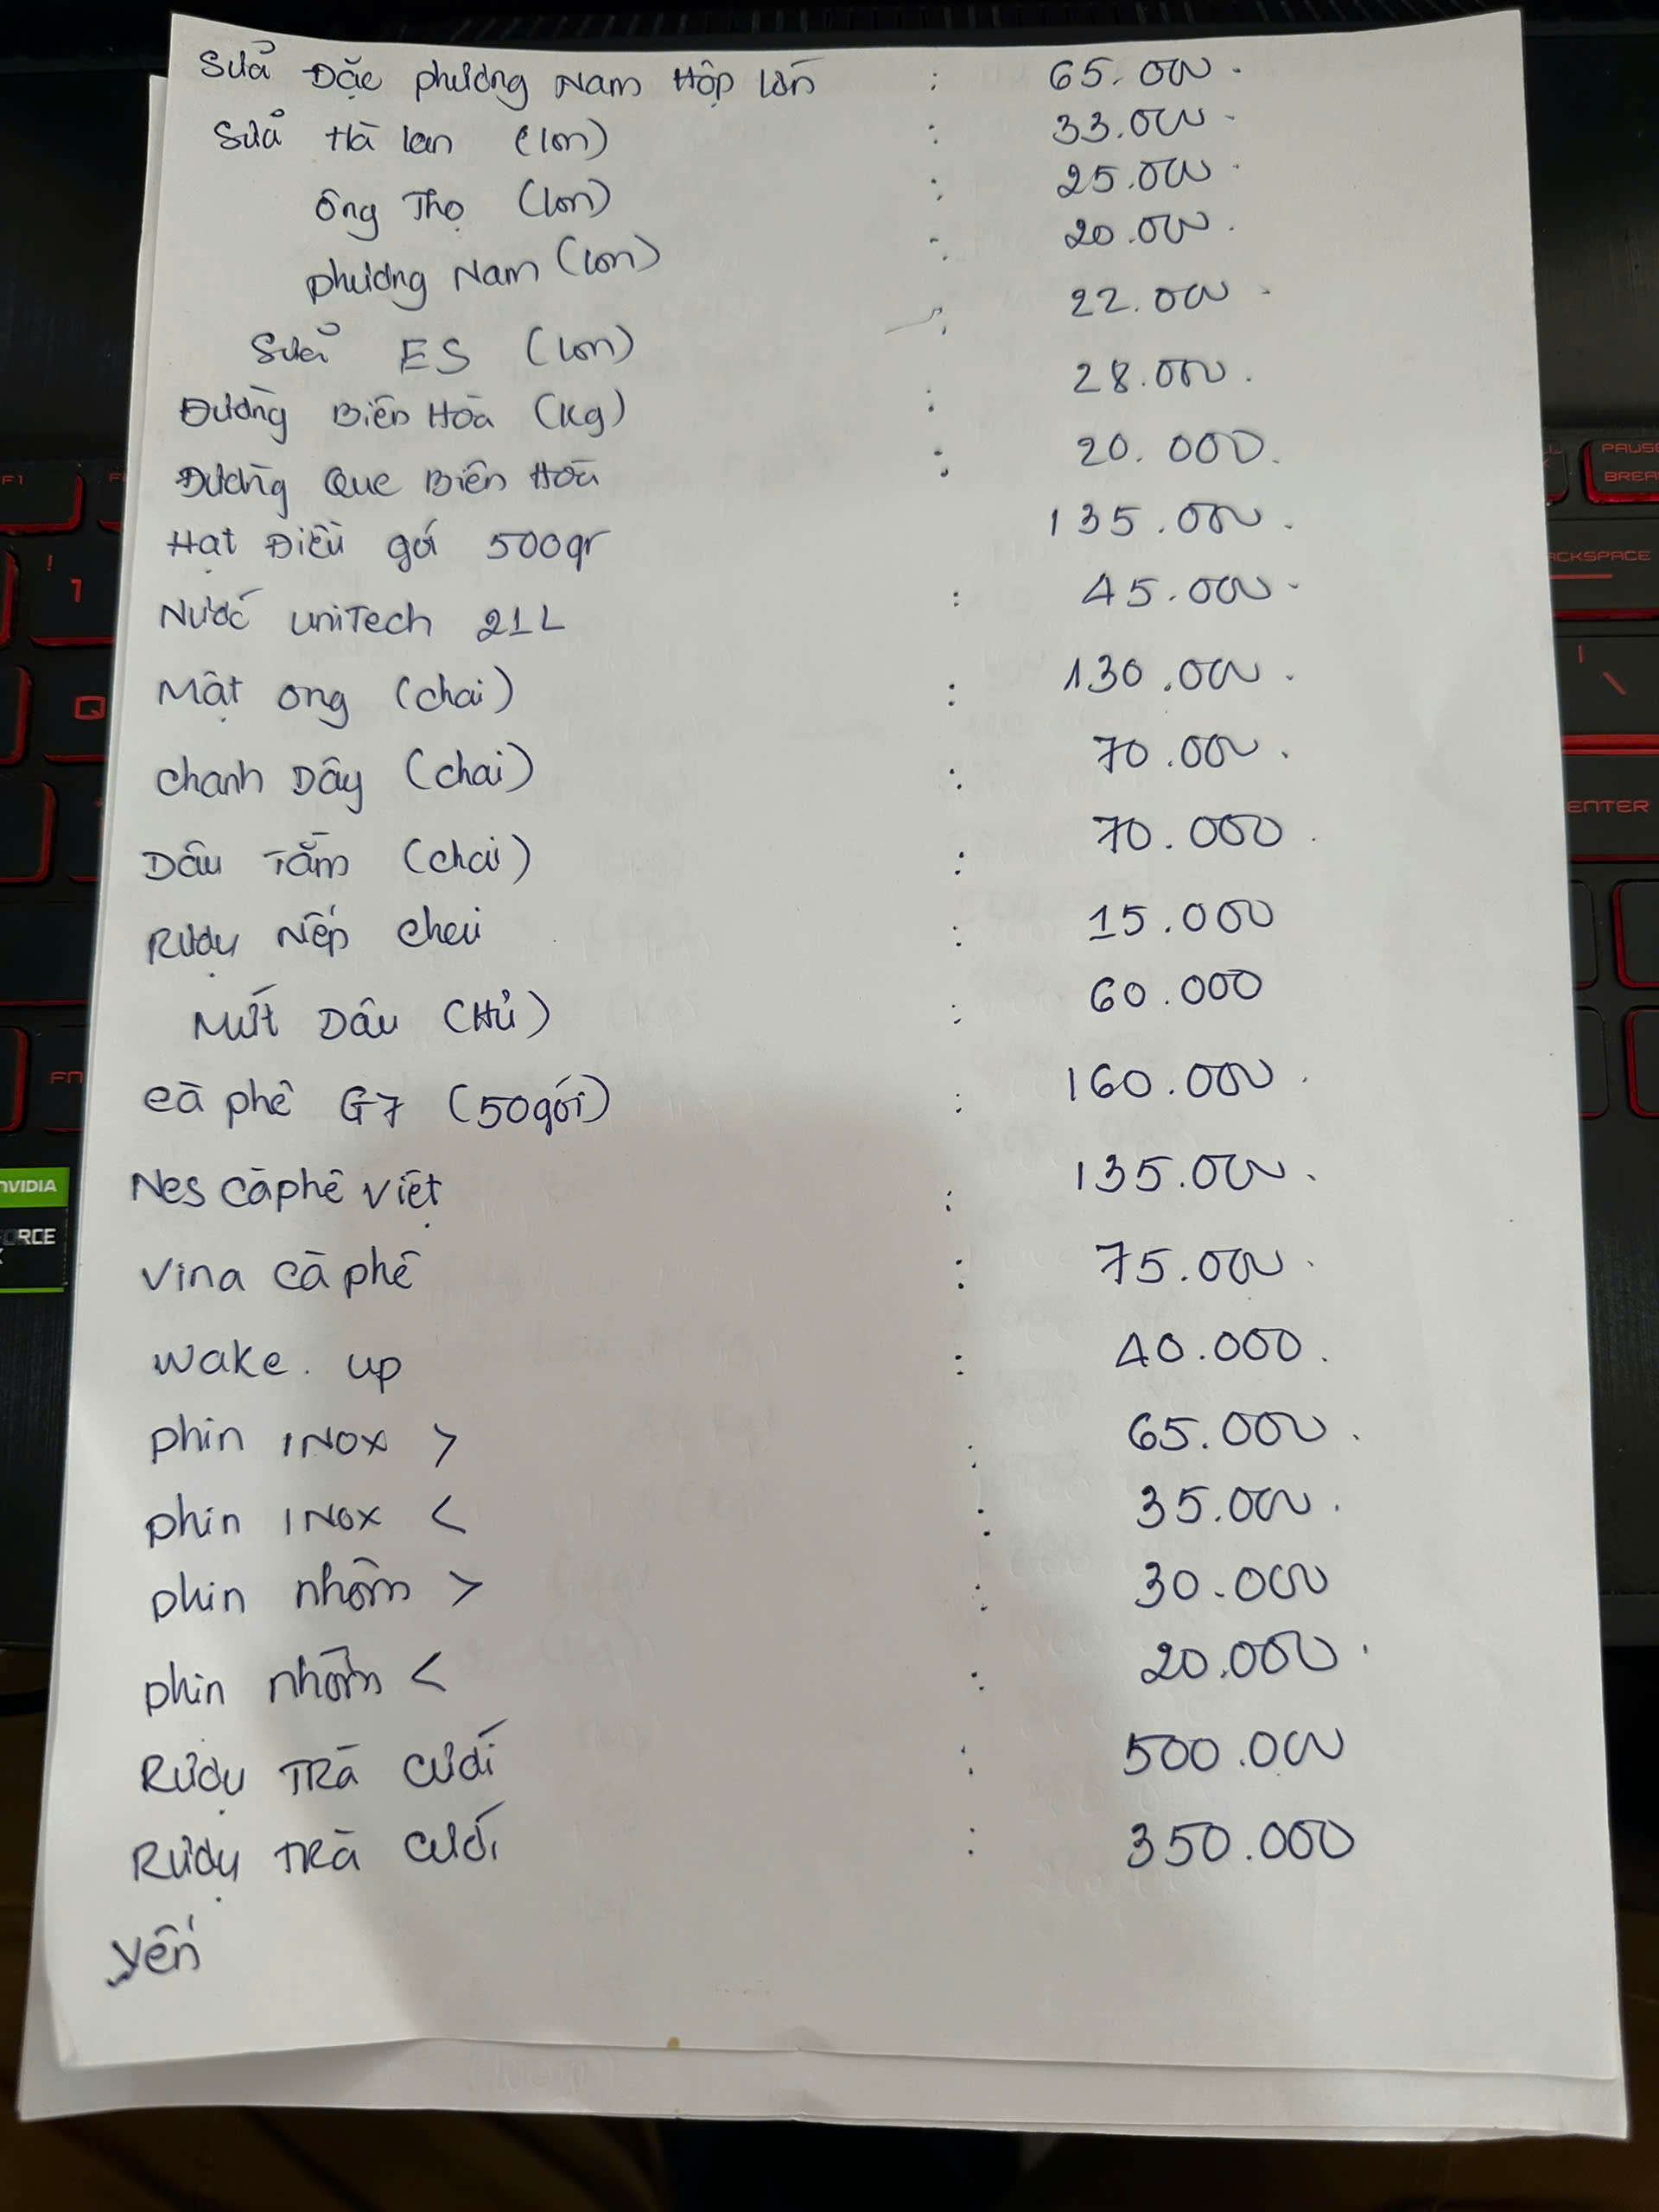 Sữa Đặc phương Nam Hộp lớn : 65.000.
Sữa Hà lan (lon) : 33.000.
Ông Thọ (lon) : 25.000.
phương Nam (lon) : 20.000.
Sữa ES (lon) : 22.000.
Đường Biên Hoà (Kg) : 28.000.
Đường Que Biên Hoà : 20.000.
Hạt Điều gói 500gr 135.000.
Nước uniTech 21L : 45.000.
Mật ong (chai) : 130.000.
chanh Dây (chai) : 70.000.
Dâu Tằm (chai) : 70.000.
Rượu Nếp chai : 15.000
Mứt Dâu (Hủ) : 60.000
cà phê G7 (50gói) : 160.000.
Nes cà phê Việt : 135.000.
Vina cà phê : 75.000.
wake. up : 40.000.
phin INOX > : 65.000.
phin INOX < : 35.000.
phin nhôm > : 30.000
phin nhôm < : 20.000.
Rượu TRà cưới : 500.000
Rượu TRà cưới : 350.000
Yến
F1
PAUSE
BREA
!
1
Q
ACKSPACE
\
ENTER
FN
NVIDIA
ORCE